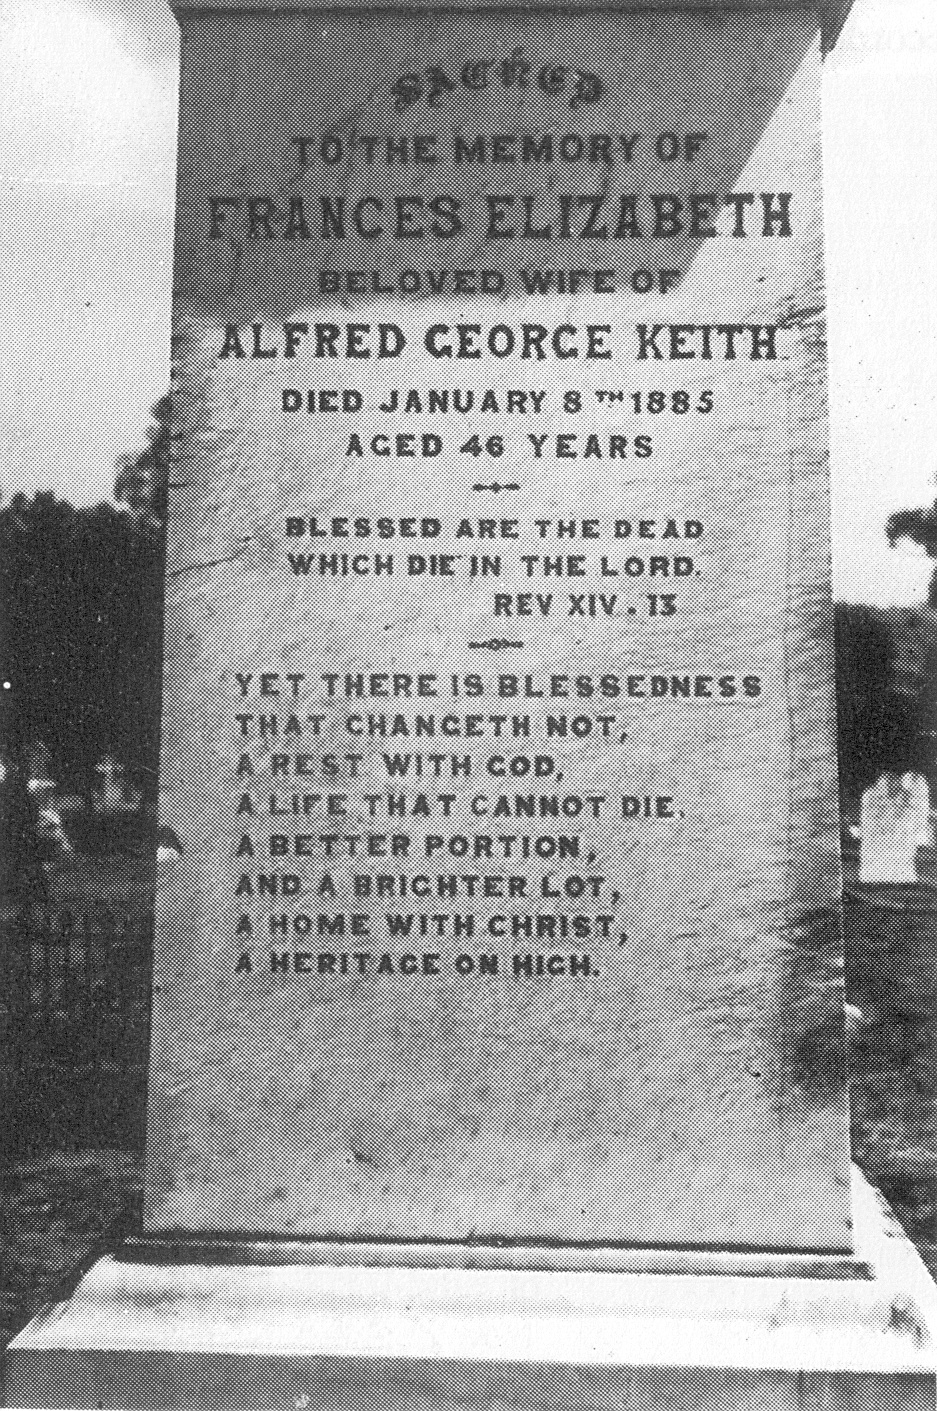 SACRED
TO THE MEMORY OF
FRANCES ELIZABETH
BELOVED WIFE OF
ALFRED GEORGE KEITH
DIED JANUARY 8TH 1885
AGED 46 YEARS
BLESSED ARE THE DEAD
WHICH DIE IN THE LORD.
REV XIV. 13
YET THERE IS BLESSEDNESS
THAT CHANGETH NOT,
A REST WITH GOD,
A LIFE THAT CANNOT DIE,
A BETTER PORTION,
AND A BRIGHTER LOT,
A HOME WITH CHRIST,
A HERITAGE ON HIGH.